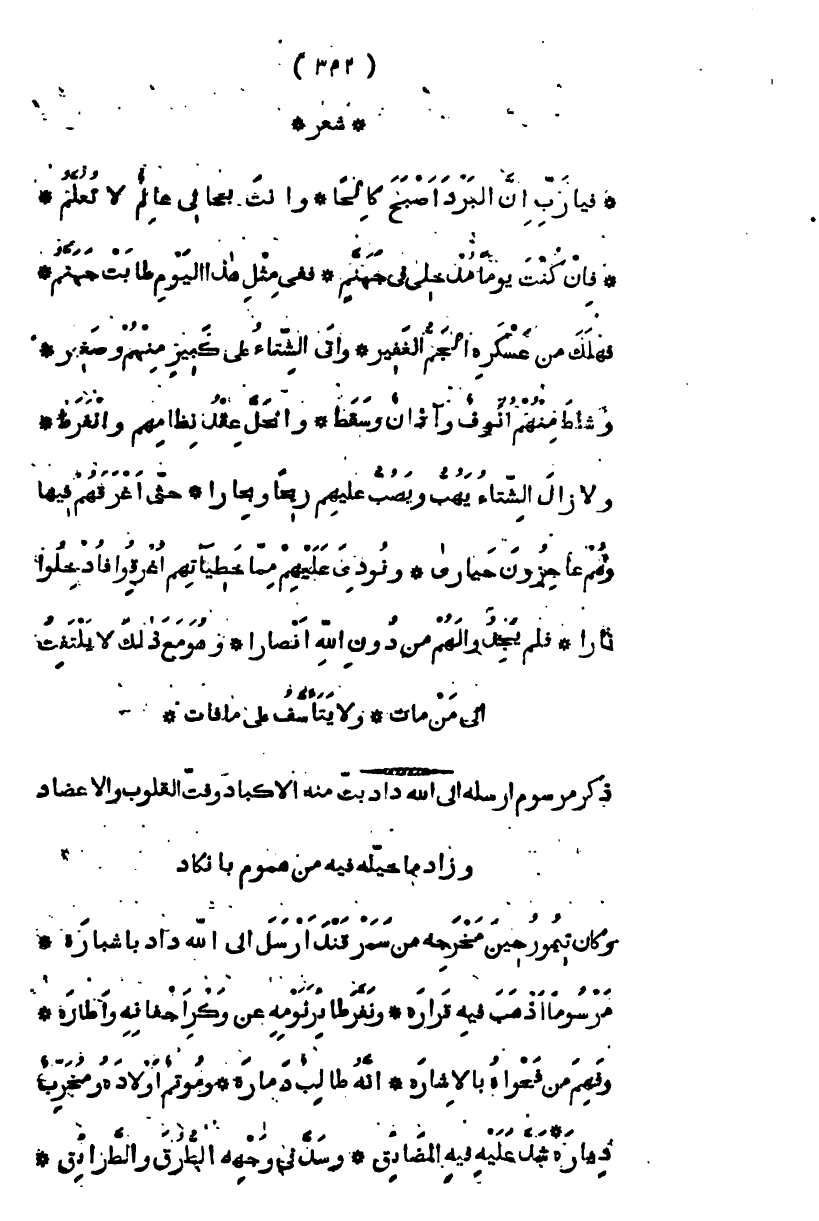 ( ٣٩٢ )
* شعر *
* فيا رَبِّ اِنَّ البَرْدَ اَصْبَحَ كَالِحًا * وانتَ بحالى عالِمٌ لا تُعَلَّمُ *
* فاِنْ كُنْتَ يوماً مُدْخِلى فى جَهَنَّمٍ * ففى مِثْلِ هٰذا اليَوْمِ طابَتْ جهنّمُ *
فهلَكَ من عَسْكَرِهِ الجَمُّ الغَفِير * واَتى الشِّتاءُ على كَبِيرٍ مِنْهُمْ وصَغِير *
وشاطَ مِنْهُم اُنُوفٌ وآذانٌ وسَقَط * وانْحَلَّ عِقْدُ نِظامِهم وانْفَرَط *
ولا زالَ الشِّتاءُ يَهُبُّ ويَصُبُّ عليهم رِيحًا وبِحارا * حتّى اَغْرَقَهُمْ فِيها
وهُمْ عاجِزُونَ حَيارى * ونُودِىَ عَلَيْهِمْ مِمّا خَطِيآتِهم اُغْرِقُوا فَاُدْخِلُوا
نارا * فلم يَجِدُوا لَهُمْ من دُونِ اللّٰهِ اَنْصارا * وهُوَ مَعَ ذٰلك لا يَلْتَفِتُ
الى مَنْ مات * ولا يَتَاَسَّفُ على ما فات *
ذكر مرسوم ارسله الى الله داد بتّ منه الاكباد وفتّ القلوب والاعضاد
وزاد ما خيّله فيه من هموم بانكاد
وكان تِيمُور حِينَ مَخْرَجِه من سَمَرْقَنْدَ اَرْسَلَ الى اللّه داد باشبارَة *
مَرْسُومًا اَذْهَبَ فيه قَرارَه * ونَفَّرَ طائِرَ نَوْمِهِ عن وَكْرِ اَجْفانِهِ واَطارَه *
وفَهِمَ من فَحْواهُ بالاِشارَه * اَنَّهُ طالِبٌ دَمارَه * ومُوتِمُ اَوْلادِهِ ومُخَرِّبٌ
دِيارَه شَدَّ عَلَيْهِ فيهِ المَضايِق * وسَدَّ فى وَجْهِهِ الطُّرُقَ والطَّرائِق *